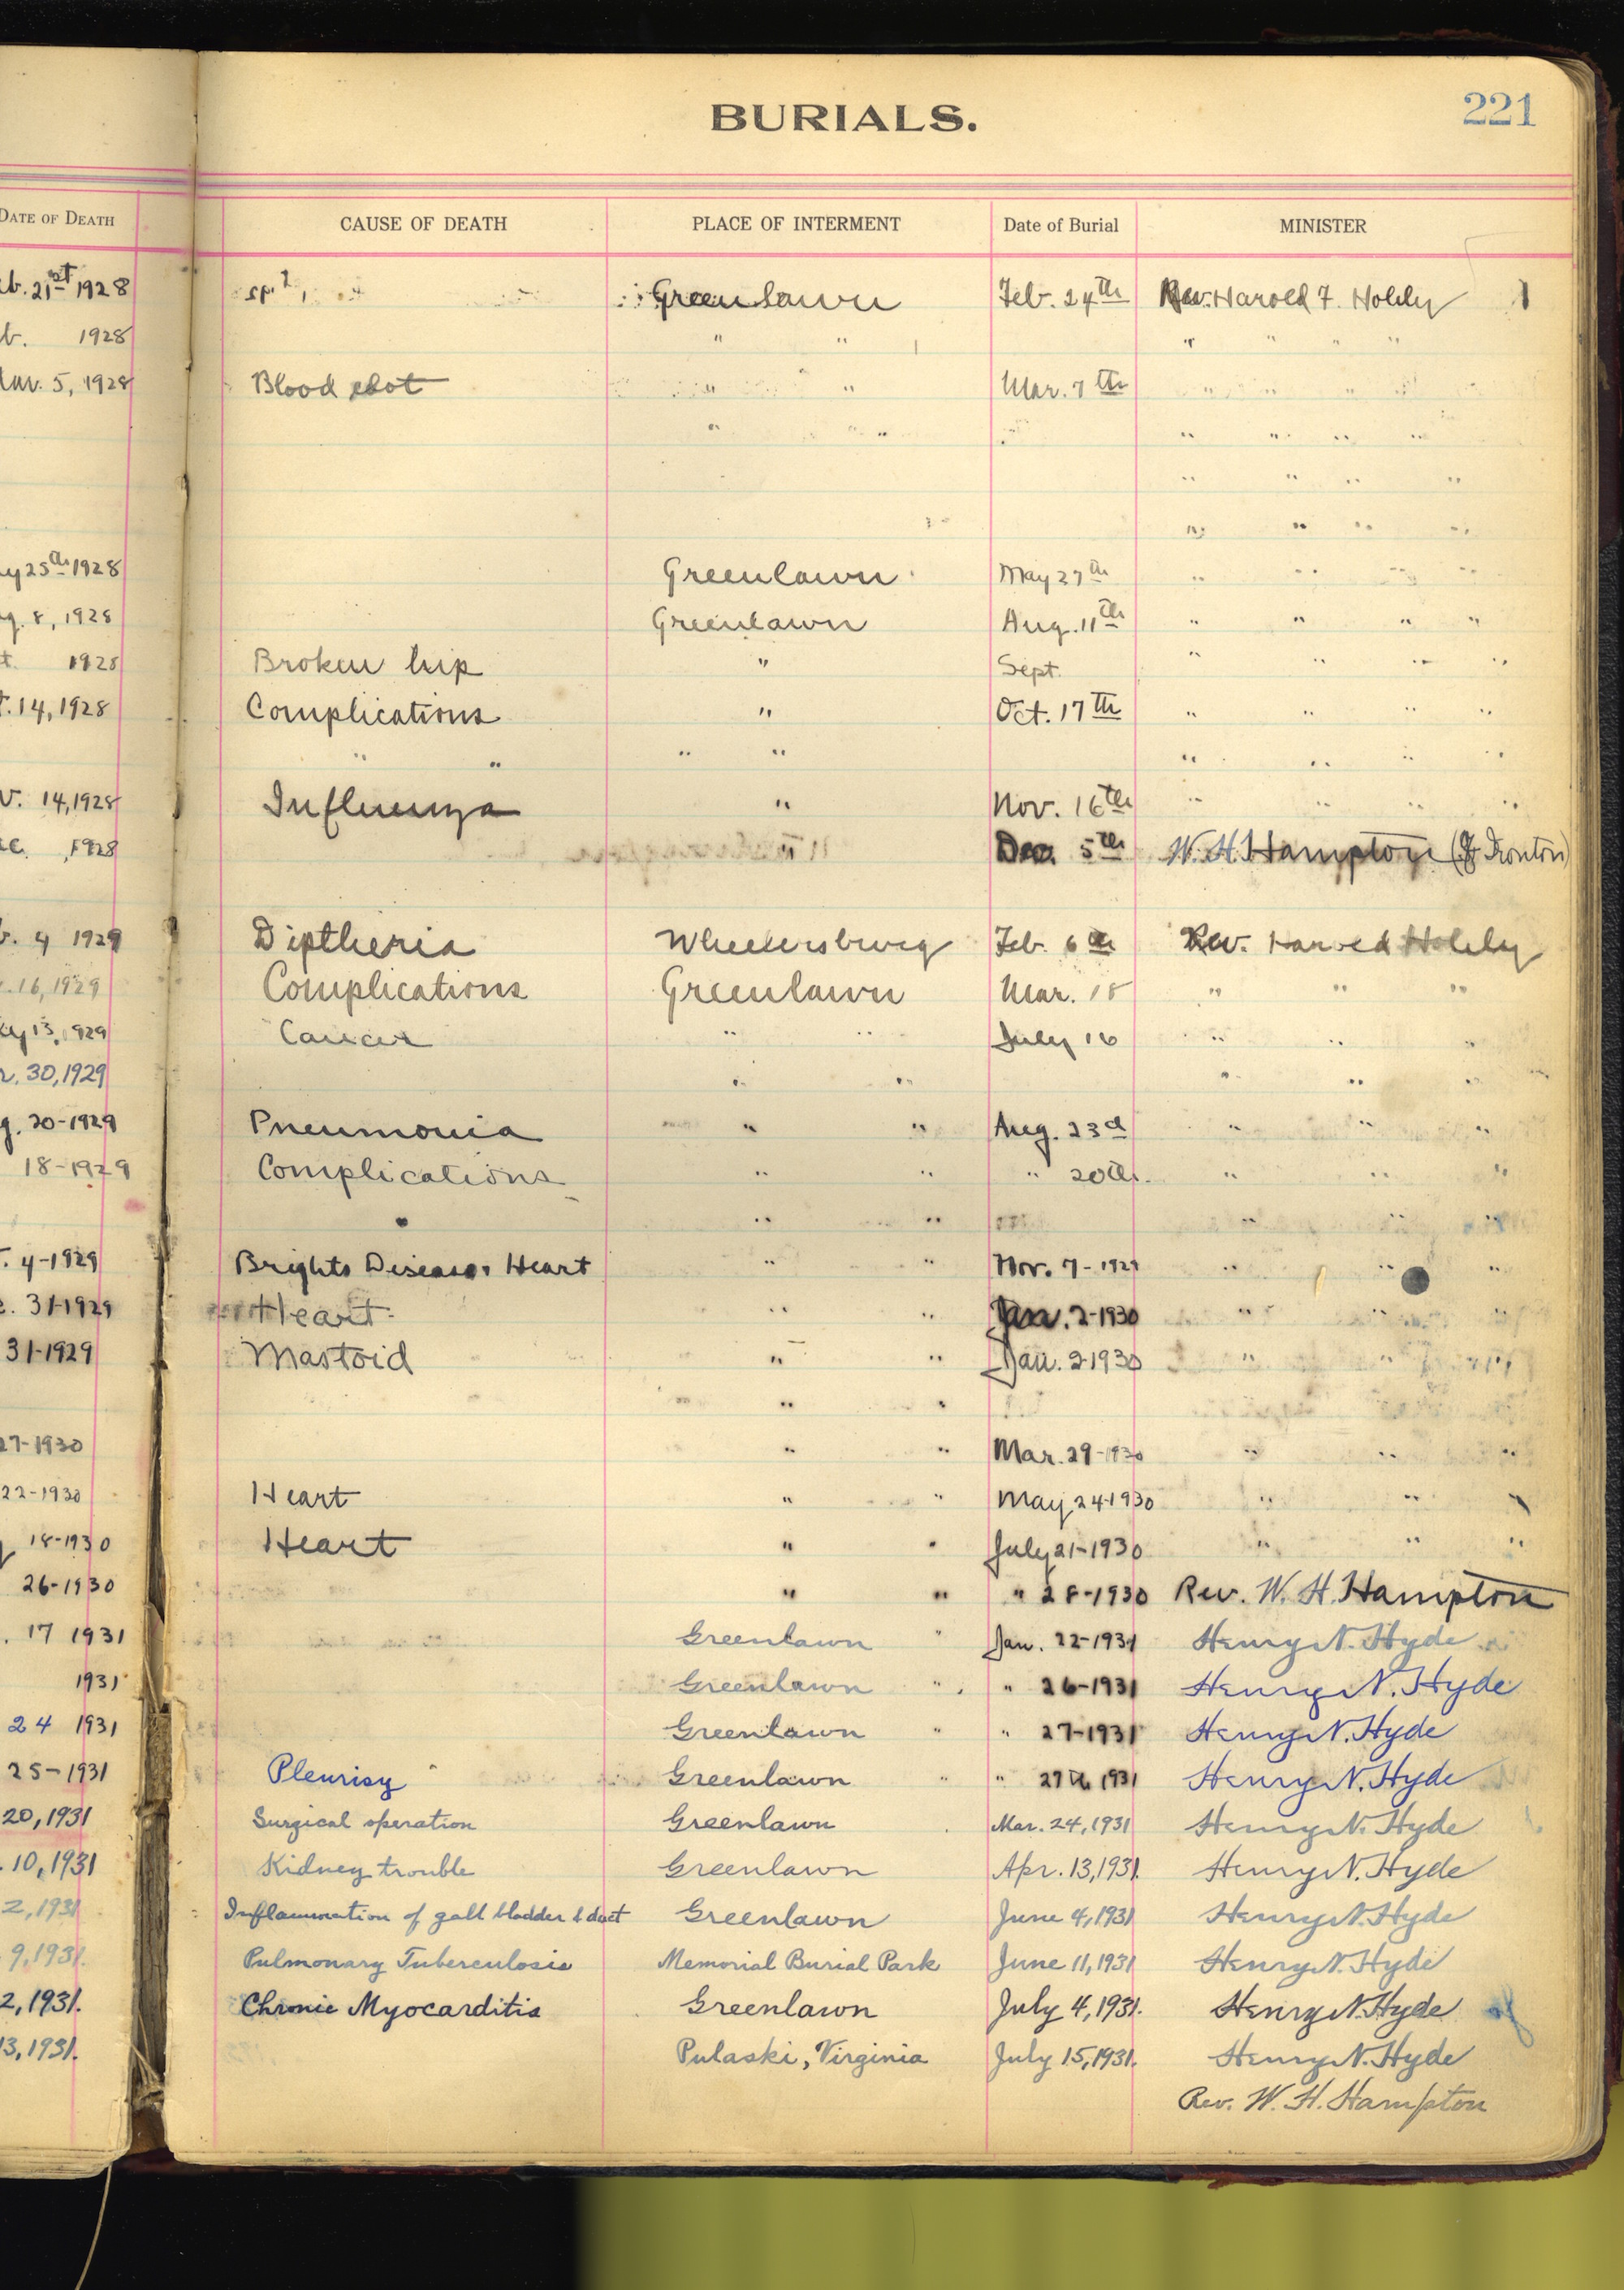 BURIALS. 221
DATE OF DEATH CAUSE OF DEATH PLACE OF INTERMENT Date of Burial MINISTER
b. 21st 1928 Greenlawn Feb. 24th Rev. Harold F. Holely 1
b. 1928 " " " " " "
Mar. 5, 1928 Blood clot " " Mar. 7th " " " "
" " " " " "
" " " "
" " " "
y 25th 1928 Greenlawn May 27th " " " "
g. 8, 1928 Greenlawn Aug. 11th " " " "
t. 1928 Broken hip " Sept. " " " "
t. 14, 1928 Complications " Oct. 17th " " " "
" " " " " " " "
v. 14, 1928 Influenza " Nov. 16th " " " "
ec. 1928 Dec. 5th W. H. Hampton (of Ironton)
b. 4 1929 Diptheria Wheelersburg Feb. 6th Rev. Harold Holely
. 16, 1929 Complications Greenlawn Mar. 18 " " "
ly 13, 1929 Cancer " " July 16 " " "
r. 30, 1929 " " " " "
g. 20-1929 Pneumonia " " Aug. 23d " " "
18-1929 Complications " " " 20th. " " "
" " " " "
. 4-1929 Brights Disease, Heart " " Nov. 7-1929 " " "
c. 31-1929 Heart " " Jan. 2-1930 " " "
31-1929 Mastoid " " Jan. 2-1930 " " "
" "
27-1930 " " Mar. 29-1930 " " "
22-1930 Heart " " May 24-1930 " " "
18-1930 Heart " " July 21-1930 " " "
26-1930 " " " 28-1930 Rev. W. H. Hampton
. 17 1931 Greenlawn " Jan. 22-1931 Henry N. Hyde
1931 Greenlawn " " 26-1931 Henry N. Hyde
24 1931 Greenlawn " " 27-1931 Henry N. Hyde
25-1931 Pleurisy Greenlawn " " 27th 1931 Henry N. Hyde
20, 1931 Surgical operation Greenlawn Mar. 24, 1931 Henry N. Hyde
. 10, 1931 Kidney trouble Greenlawn Apr. 13, 1931. Henry N. Hyde
2, 1931 Inflammation of gall bladder & duct Greenlawn June 4, 1931 Henry N. Hyde
9, 1931. Pulmonary Tuberculosis Memorial Burial Park June 11, 1931 Henry N. Hyde
2, 1931. Chronic Myocarditis Greenlawn July 4, 1931. Henry N. Hyde
13, 1931. Pulaski, Virginia July 15, 1931. Henry N. Hyde
Rev. W. H. Hampton